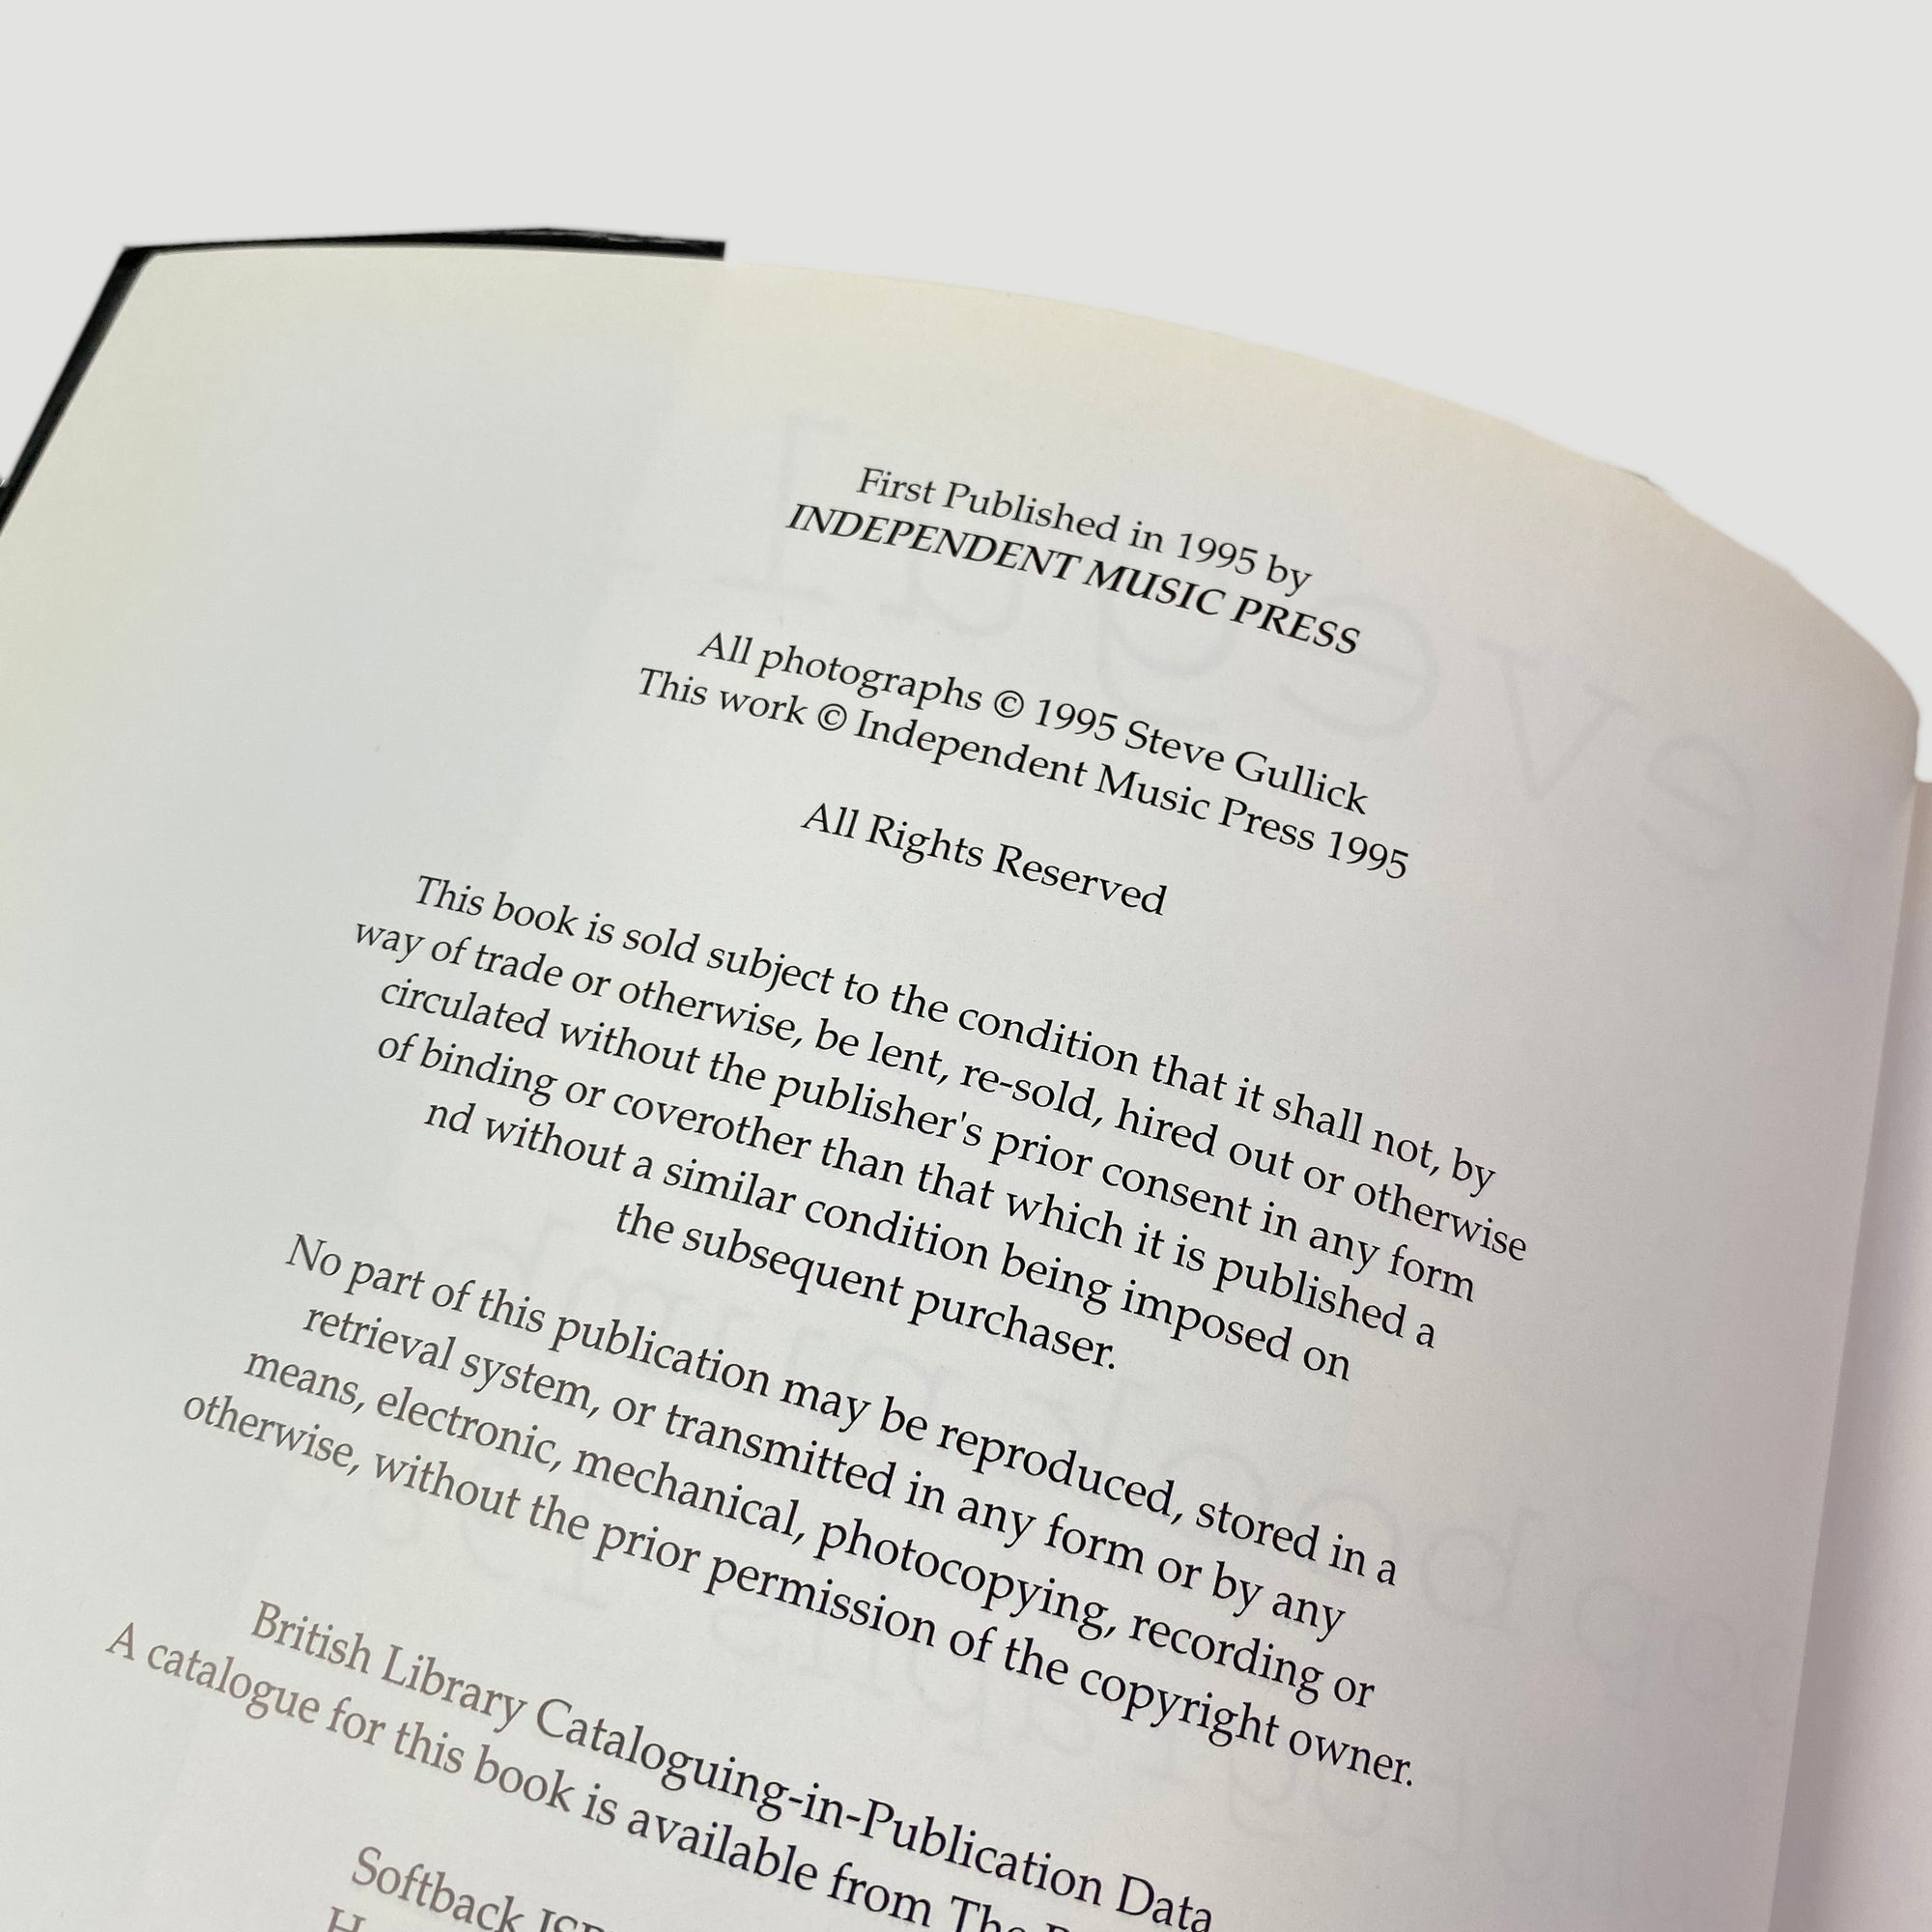 First Published in 1995 by
INDEPENDENT MUSIC PRESS
All photographs © 1995 Steve Gullick
This work © Independent Music Press 1995
All Rights Reserved
This book is sold subject to the condition that it shall not, by
way of trade or otherwise, be lent, re-sold, hired out or otherwise
circulated without the publisher's prior consent in any form
of binding or coverother than that which it is published a
nd without a similar condition being imposed on
the subsequent purchaser.
No part of this publication may be reproduced, stored in a
retrieval system, or transmitted in any form or by any
means, electronic, mechanical, photocopying, recording or
otherwise, without the prior permission of the copyright owner.
British Library Cataloguing-in-Publication Data
A catalogue for this book is available from The
Softback